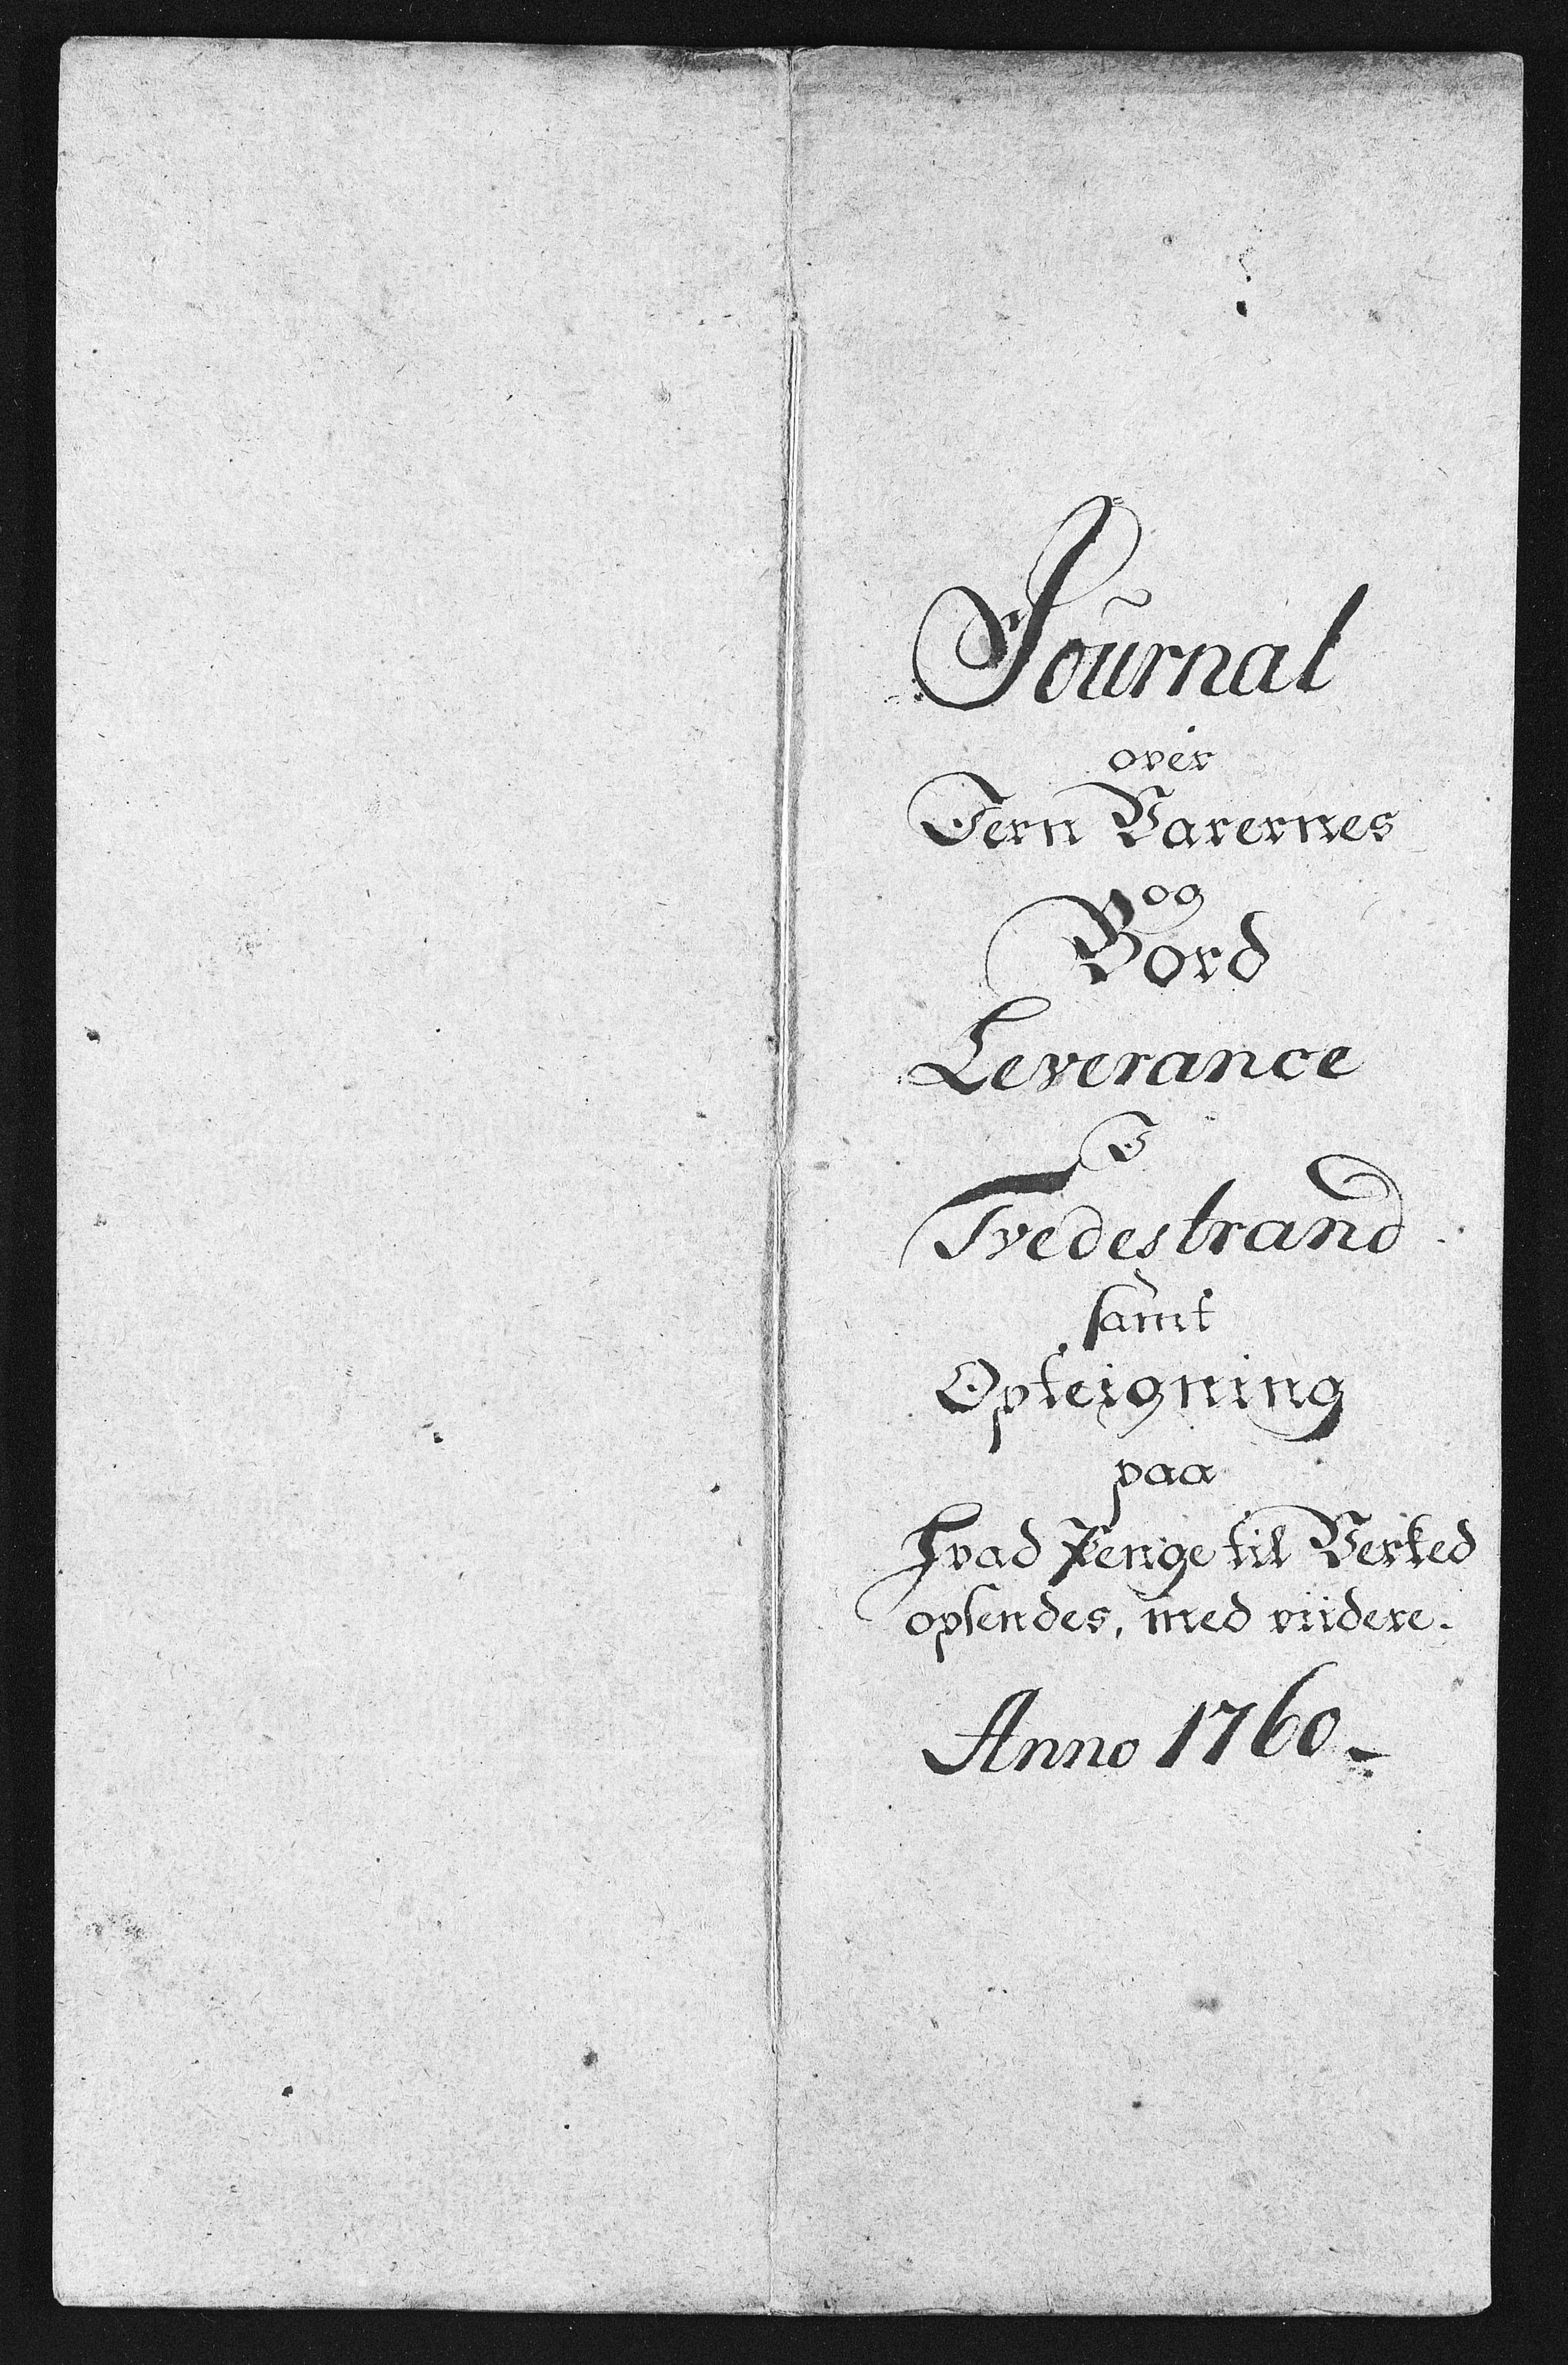 Journal
over
Jern Varernes
og
Bord
Leverance
I
Tvedestrand
samt
Opteigning
paa
Hvad Penge til Verked
opsendes, med viidere.
Anno 1760.